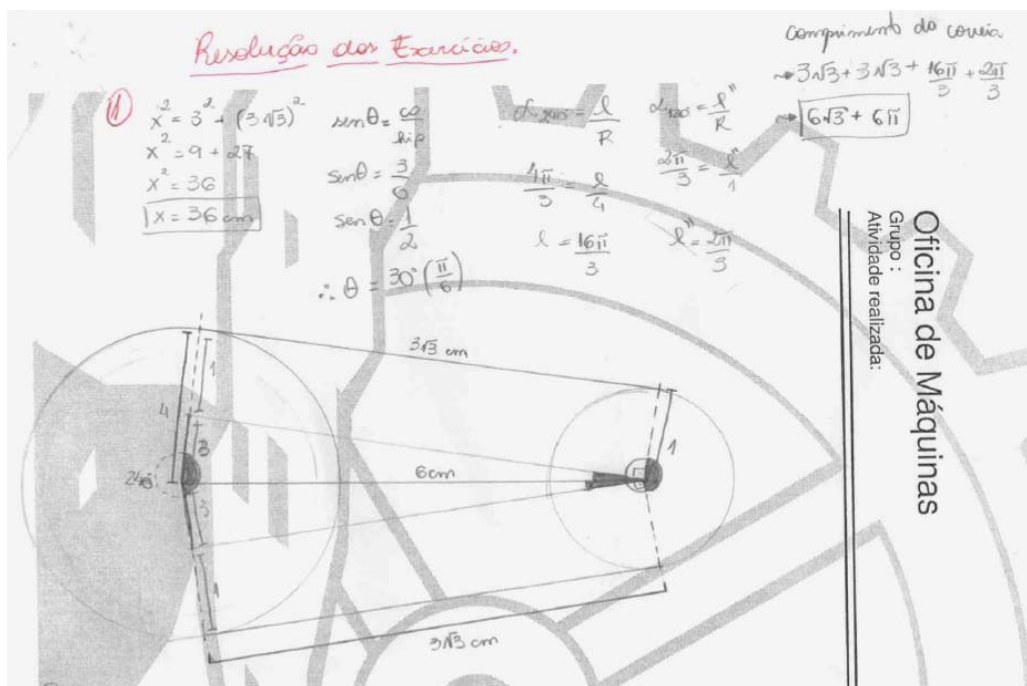 Resolução dos Exercícios.
comprimento da correia
→ 3√3 + 3√3 + 16π/3 + 2π/3
→ 6√3 + 6π
1
x² = 3² + (3√3)²
x² = 9 + 27
x² = 36
x = 36 cm
senθ = co/hip
senθ = 3/6
senθ = 1/2
∴ θ = 30° (π/6)
α₂₄₀ = l/R
4π/3 = l/4
l = 16π/3
α₁₂₀ = l"/R
2π/3 = l"/1
l" = 2π/3
3√3 cm
4
1
3
240°
6cm
1
3
1
3√3 cm
Oficina de Máquinas
Grupo :
Atividade realizada: